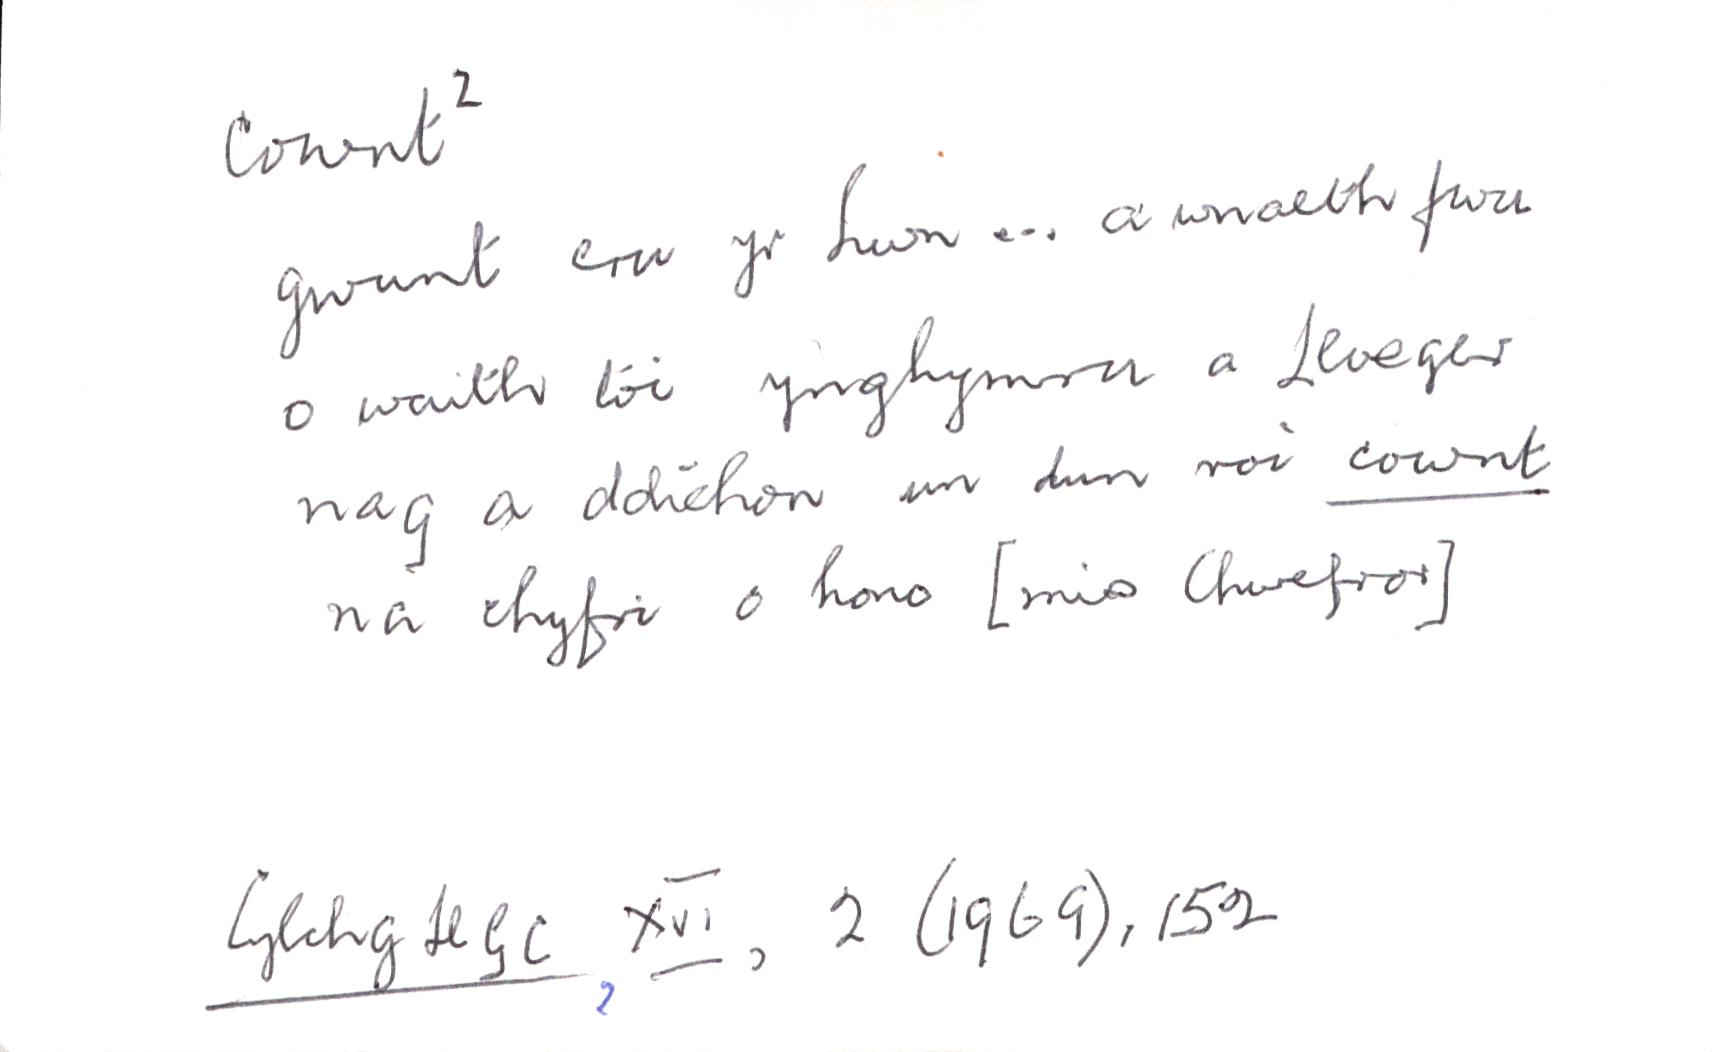 Cownt²
gwunt cru yr hwn ... a wnaeth fwu
o waith tòi ynghymru a Lloeger
nag a ddichon un dun roi cownt
na chyfri o hono [mis Chwefror]
Cylchg LlGC, XVI, 2 (1969), 152